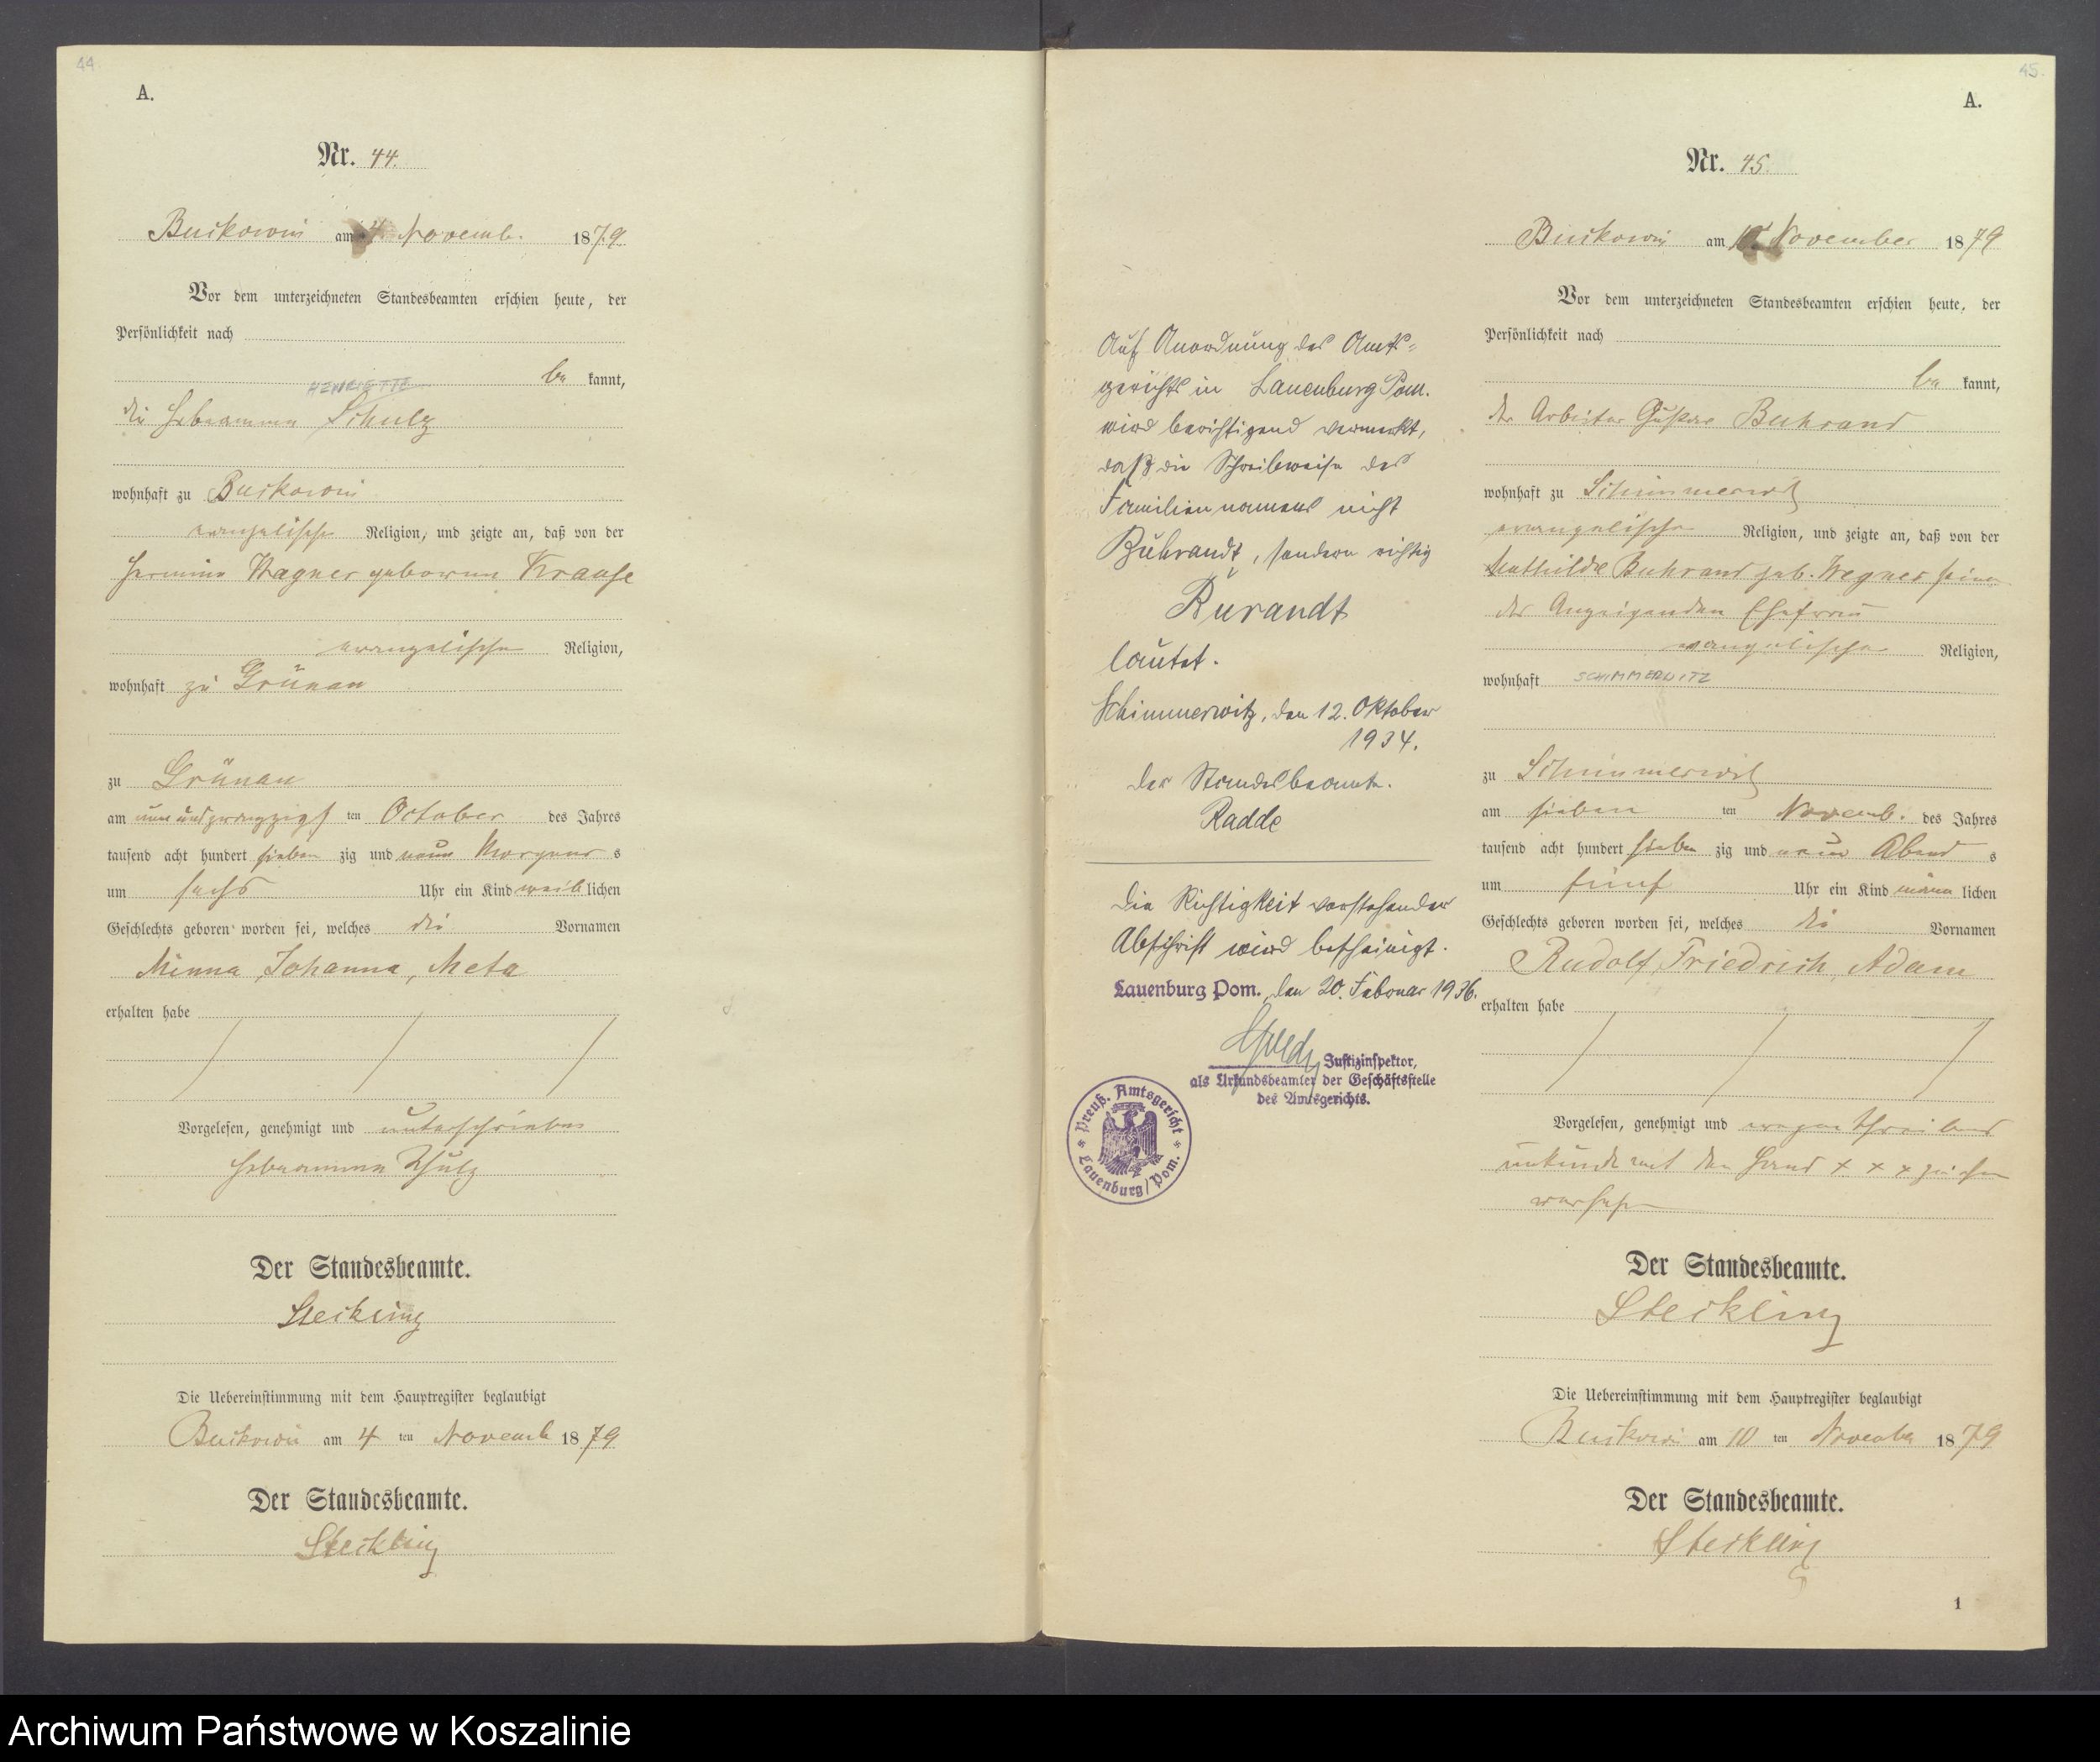 44.
A.
Nr. 44.
Buckowin am 4. Novemb. 1879
Vor dem unterzeichneten Standesbeamten erschien heute, der
Persönlichkeit nach
be kannt,
HENRIETTE
die Hebeamme Schulz
wohnhaft zu Buckowin
evangelische Religion, und zeigte an, daß von der
Hermine Wagner geborene Krause
evangelische Religion,
wohnhaft zu Grünau
zu Grünau
am neun und zwanzigst ten October des Jahres
tausend acht hundert sieben zig und neun Morgens s
um sechs Uhr ein Kind weib lichen
Geschlechts geboren worden sei, welches die Vornamen
Minna, Johanna, Meta
erhalten habe
Vorgelesen, genehmigt und unterschrieben
Hebeamme Schulz
Der Standesbeamte.
Steckling
Die Uebereinstimmung mit dem Hauptregister beglaubigt
Buckowin am 4 ten Novemb 1879
Der Standesbeamte.
Steckling
Auf Anordnung des Amts=
gerichts in Lauenburg Pom.
wird berichtigend vermerkt,
daß die Schreibweise des
Familiennamens nicht
Buhrandt, sondern richtig
Burandt
lautet.
Schimmerwitz, den 12. Oktober
1934.
Der Standesbeamte.
Radde
Die Richtigkeit vorstehender
Abschrift wird bescheinigt.
Lauenburg Pom., den 20. Februar 1936.
Justizinspektor,
als Urkundsbeamter der Geschäftsstelle
des Amtsgerichts.
Preuß. Amtsgericht
Lauenburg/Pom.
45.
A.
Nr. 45.
Buckowin am 10. November 1879
Vor dem unterzeichneten Standesbeamten erschien heute, der
Persönlichkeit nach
be kannt,
der Arbeiter Gustav Buhrand
wohnhaft zu Schimmerwitz
evangelische Religion, und zeigte an, daß von der
Mathilde Buhrand geb. Wegner seine
des Anzeigenden Ehefrau
evangelische Religion,
wohnhaft SCHIMMERWITZ
zu Schimmerwitz
am sieben ten Novemb. des Jahres
tausend acht hundert sieben zig und neun Abend s
um fünf Uhr ein Kind männ lichen
Geschlechts geboren worden sei, welches die Vornamen
Rudolf, Friedrich, Adam
erhalten habe
Vorgelesen, genehmigt und wegen Schreibens
unkunde mit den Hand x x x zeichen
versehen
Der Standesbeamte.
Steckling
Die Uebereinstimmung mit dem Hauptregister beglaubigt
Buckowin am 10 ten November 1879
Der Standesbeamte.
Steckling
1
Archiwum Państwowe w Koszalinie